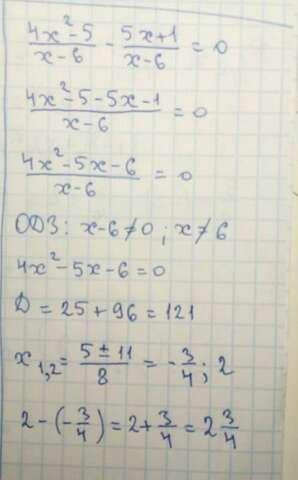 (4x²-5)/(x-6) - (5x+1)/(x-6) = 0
(4x²-5-5x-1)/(x-6) = 0
(4x²-5x-6)/(x-6) = 0
ОДЗ: x-6≠0; x≠6
4x²-5x-6=0
D = 25 + 96 = 121
x₁,₂ = (5±11)/8 = -3/4; 2
2-(-3/4) = 2+3/4 = 2 3/4